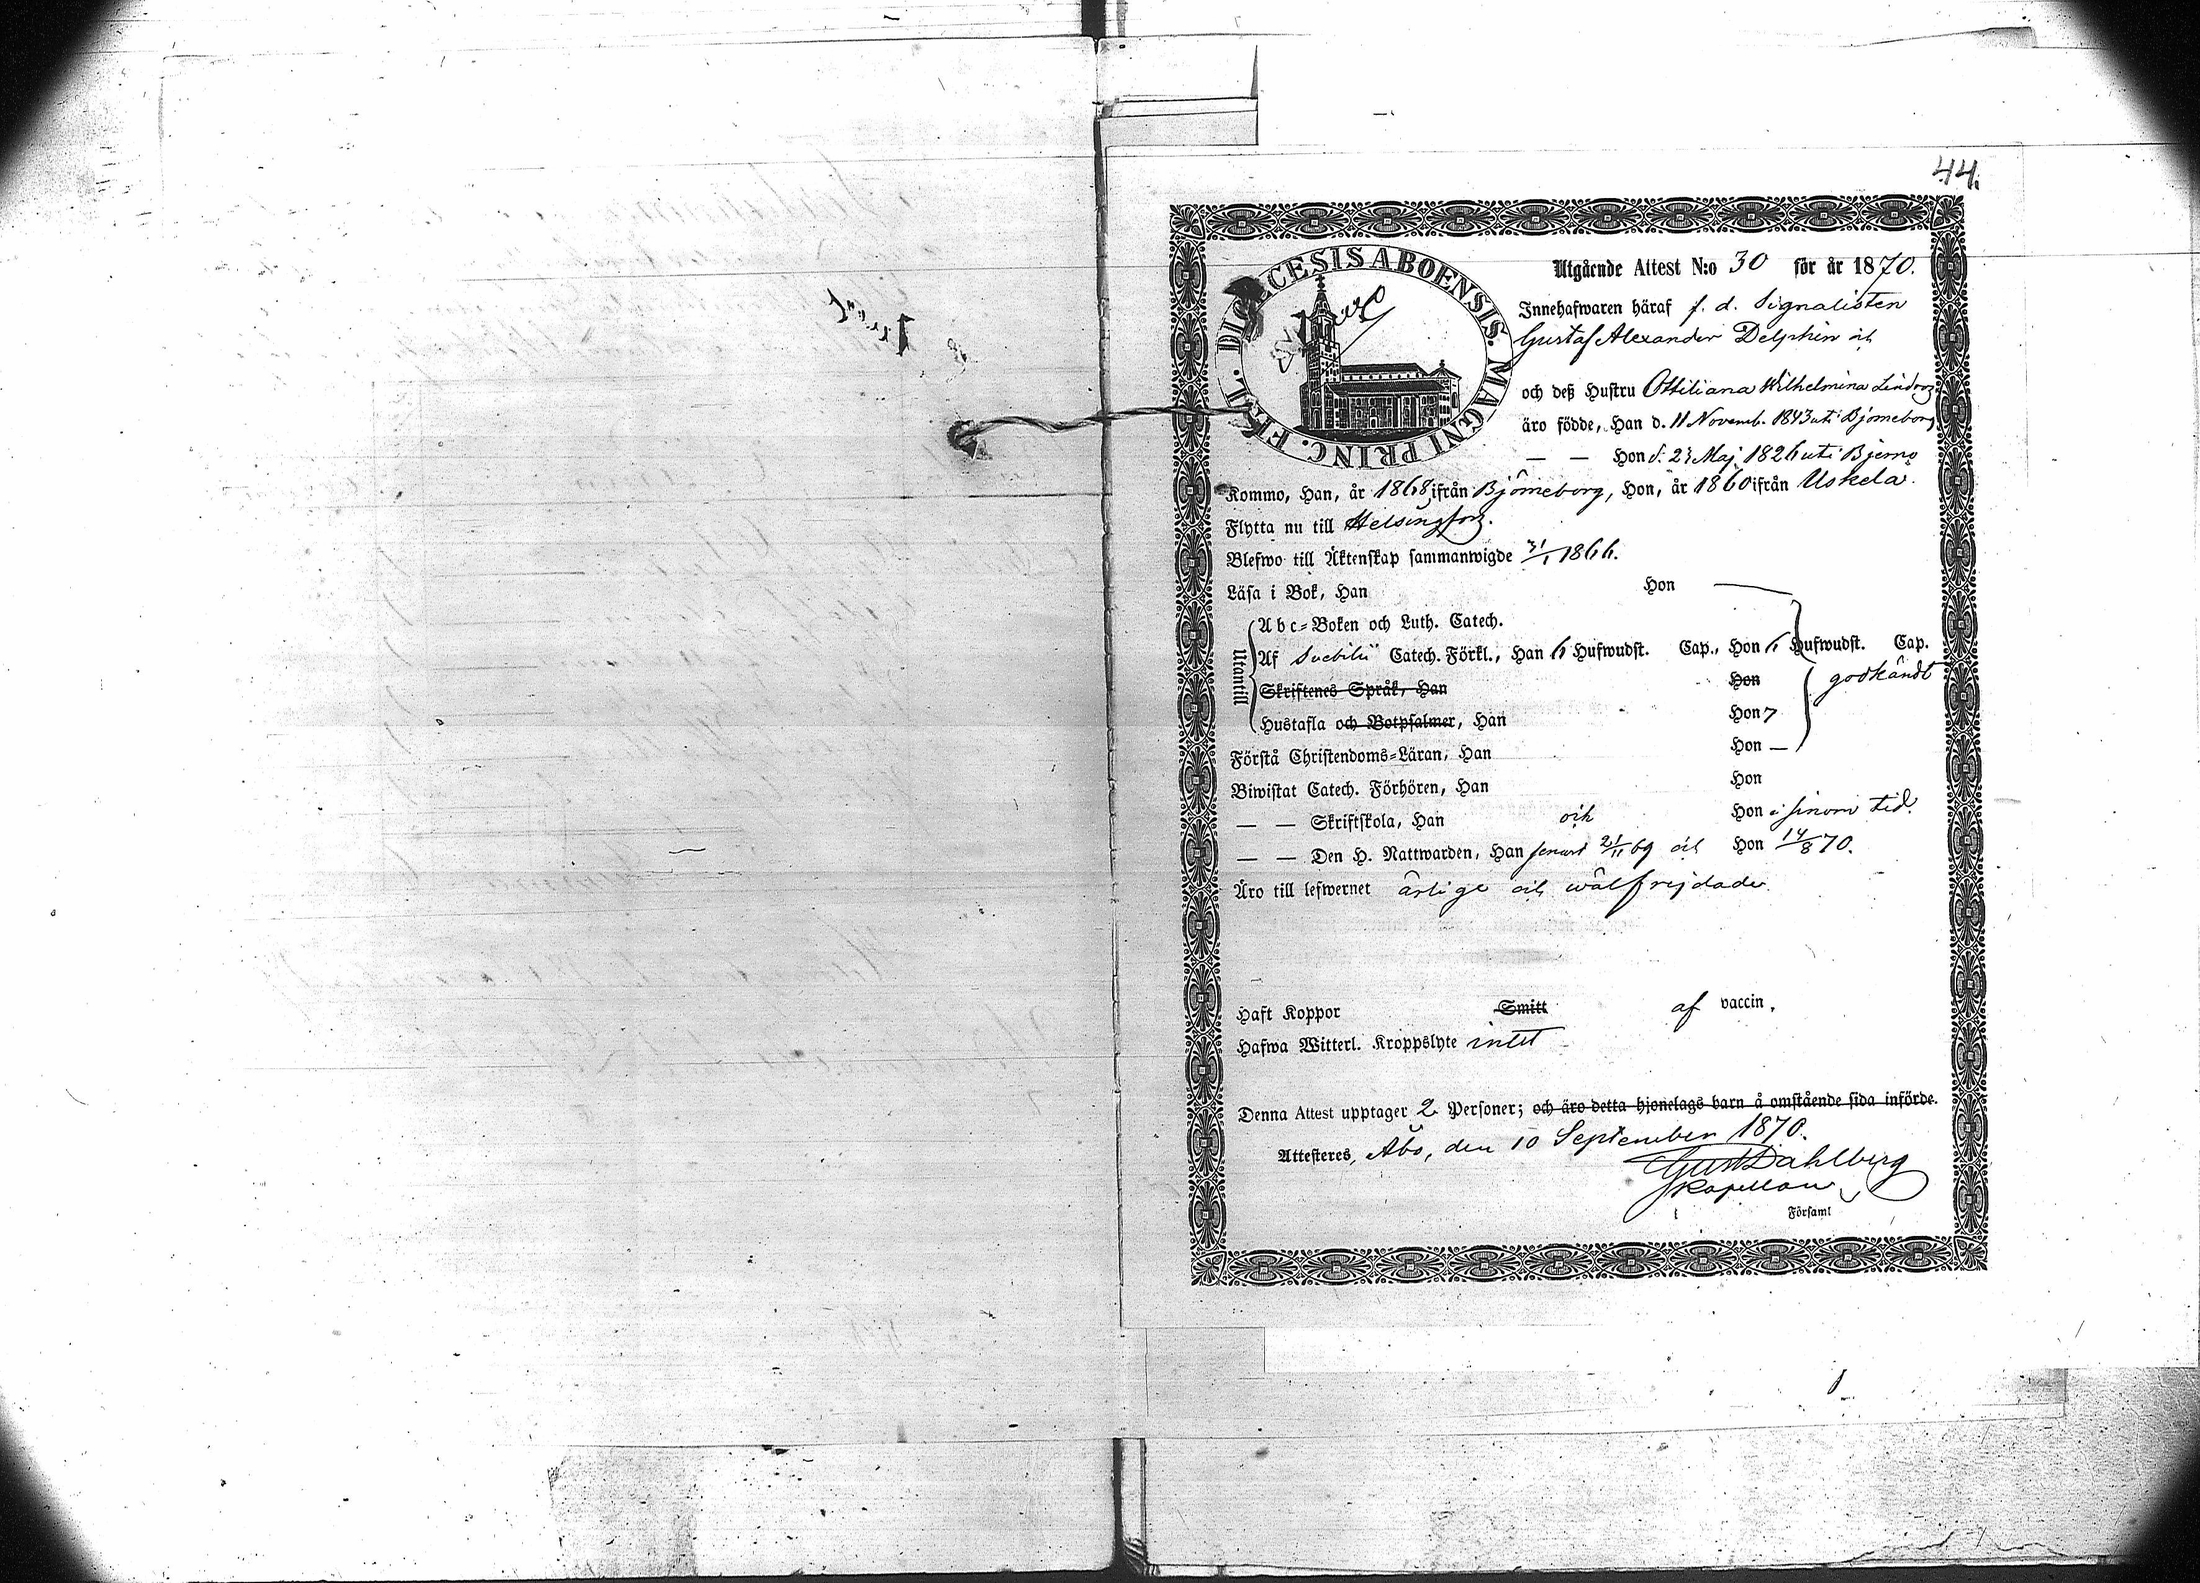 44.
DIOECESIS ABOENSIS. MAGNI PRINC. FINL.
Utgående Attest N:o 30 för år 1870.
Innehafwaren häraf f. d. Signalisten
Gustaf Alexander Delphin och
och deß Hustru Ottiliana Wilhelmina
äro födde, Han d. 11 Novemb. 1843 uti Björneborg
— — Hon d. 23 Maj 1826 uti Bjerno
Kommo, Han, år 1868, ifrån Björneborg, Hon, år 1860 ifrån Uskela.
Flytta nu till Helsingfors.
Blefwo till Äktenskap sammanwigde 31/1 1866.
Läsa i Bok, Han Hon —
Utantill
Abc-Boken och Luth. Catech.
Af Svebilii Catech. Förkl., Han 6 Hufwudst. Cap., Hon 6 Hufwudst. Cap.
Skriftenes Språk, Han Hon godkändt
Hustafla och Botpsalmer, Han Hon 7
Förstå Christendoms-Läran, Han Hon —
Biwistat Catech. Förhören, Han Hon
— — Skriftskola, Han och Hon i sinom tid.
— — Den H. Nattwarden, Han senast 21/11 69 och Hon 14/8 70.
Äro till lefwernet ärlige och wälfrejdade.
Haft Koppor Smitt af vaccin.
Hafwa Witterl. Kroppslyte intet
Denna Attest upptager 2 Personer; och äro detta hjonelags barn å omstående sida införde.
Attesteres, Åbo, den 10 September 1870.
Gust Dahlberg
Kapellan
Församl